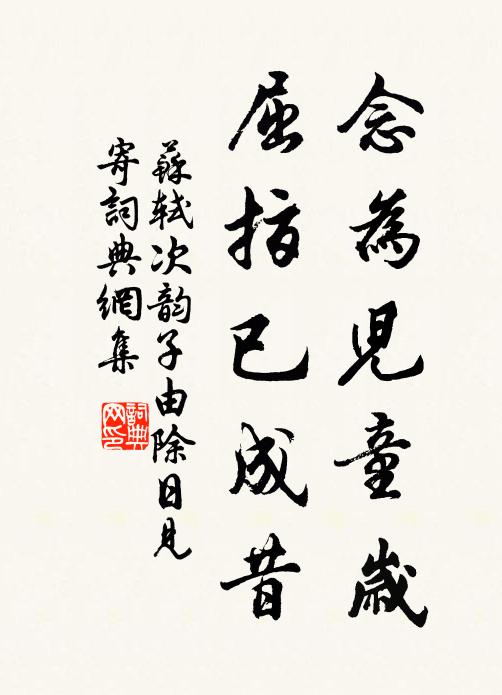 念為兒童歲
屈指已成昔
蘇軾次韵子由除日見
寄詞典網集
詞典
网印